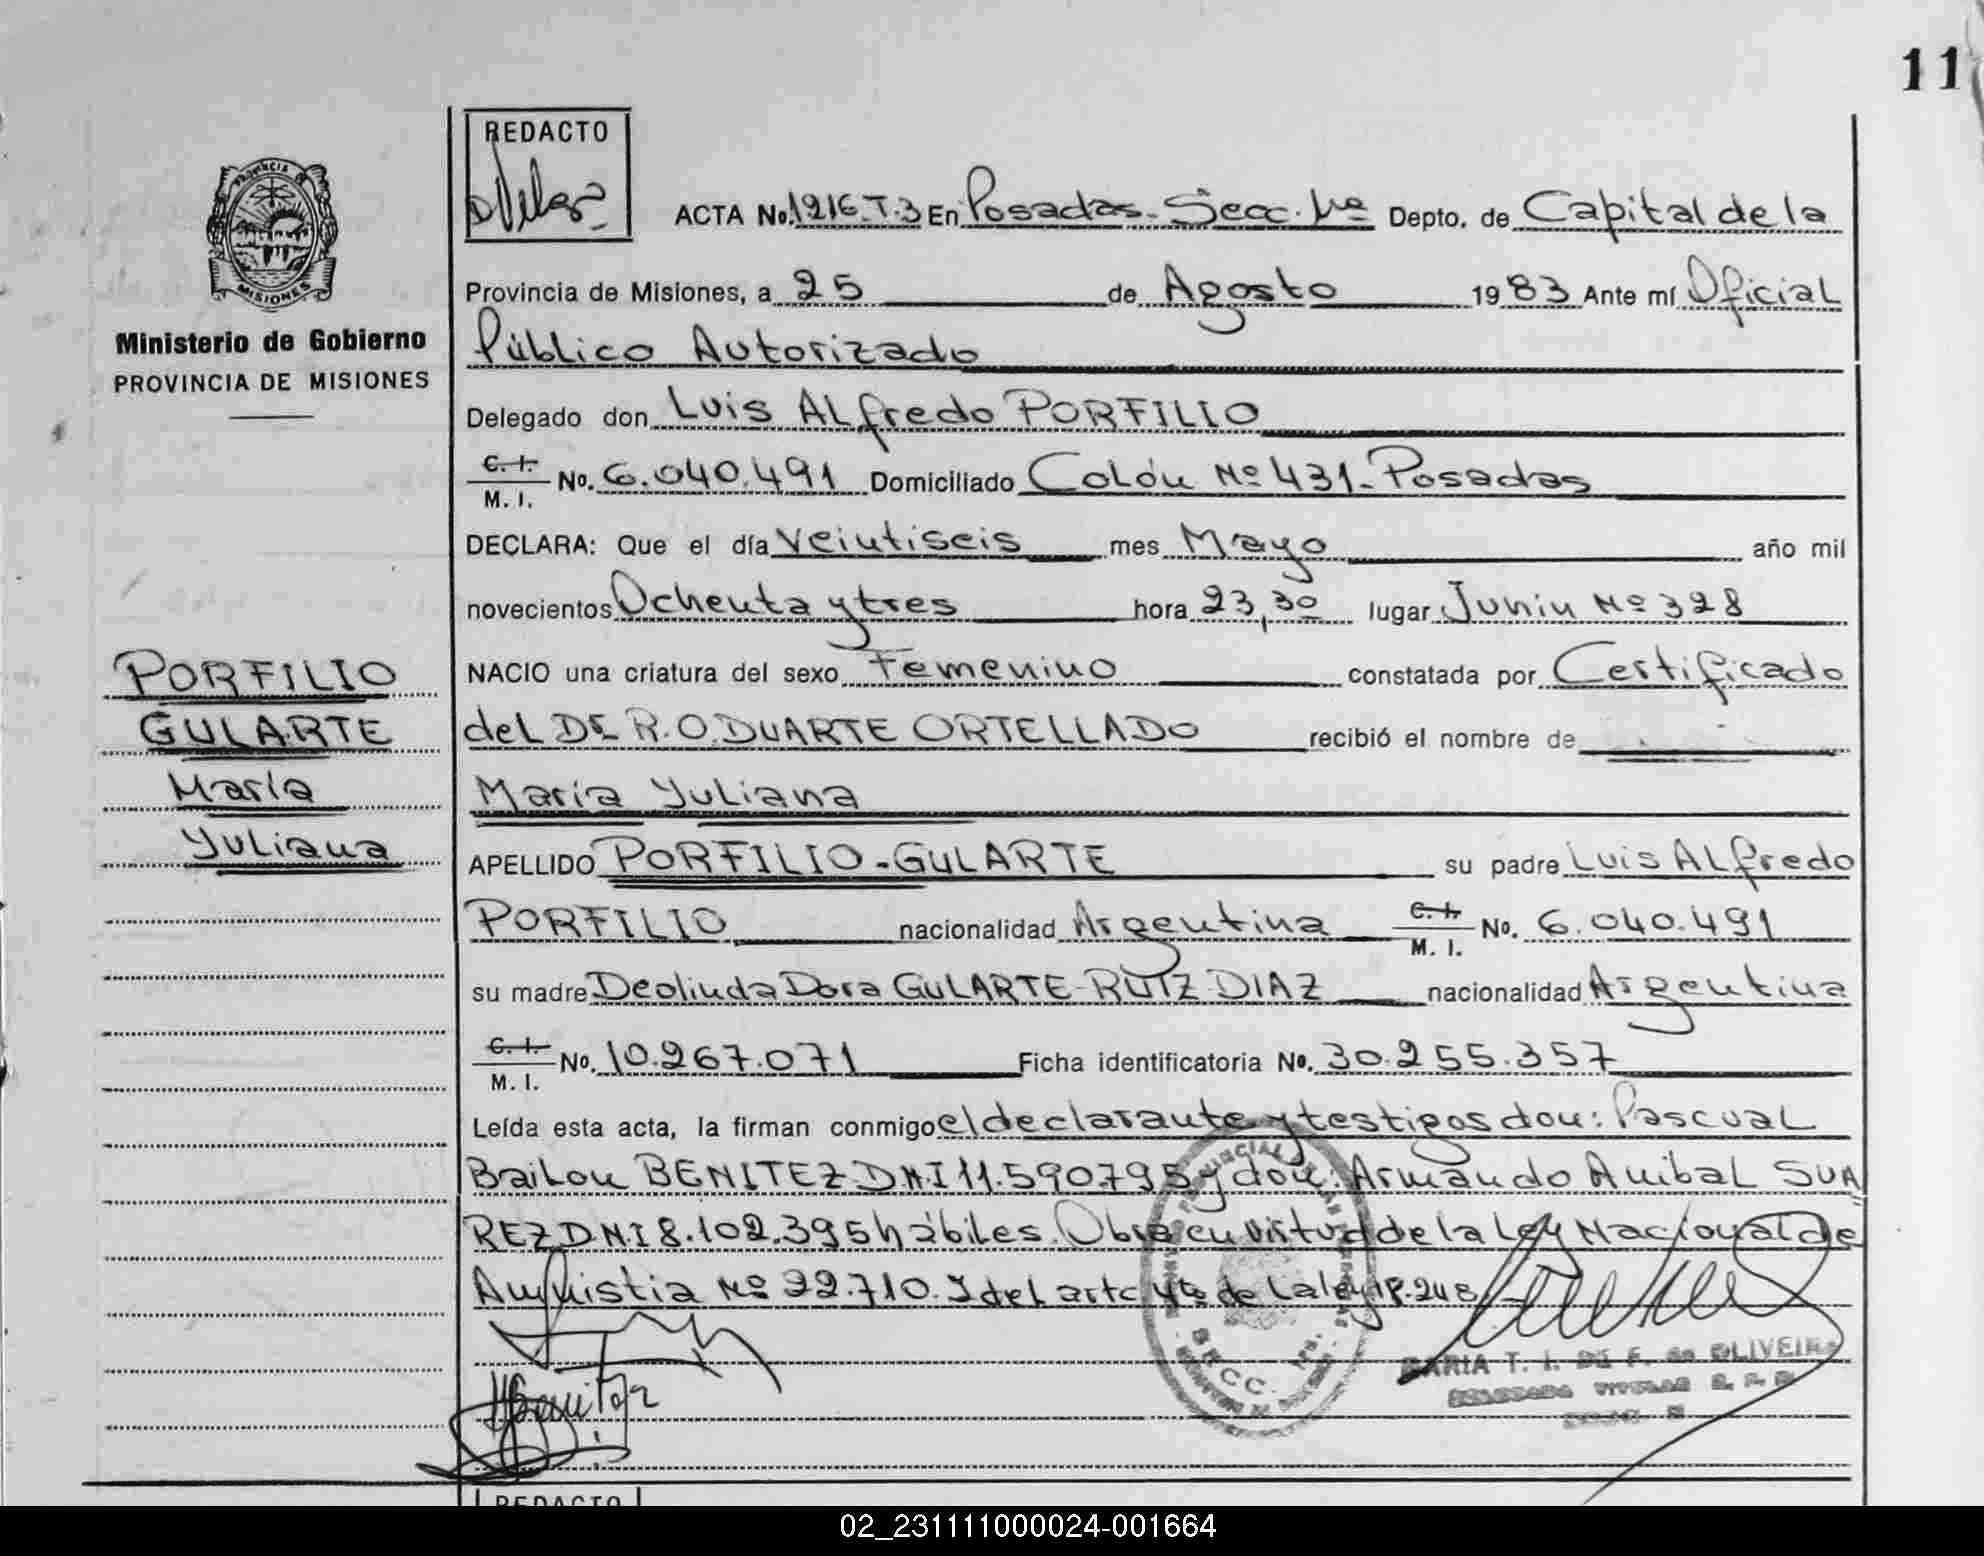 11
REDACTO
ACTA No. 1216. T. 3 En Posadas - Secc. 1ra Depto. de Capital de la
PROVINCIA DE
MISIONES
Provincia de Misiones, a 25 de Agosto 1983 Ante mí Oficial
Ministerio de Gobierno
PROVINCIA DE MISIONES
Público Autorizado
Delegado don Luis ALfredo PORFILIO
C. I.
M. I. No. 6.040.491 Domiciliado Colón Nº 431- Posadas
DECLARA: Que el día Veintiseis mes Mayo año mil
novecientos Ochenta y tres hora 23,30 lugar Junin Nº 328
NACIO una criatura del sexo Femenino constatada por Certificado
del Dr R. O. DUARTE ORTELLADO recibió el nombre de
María Yuliana
APELLIDO PORFILIO - GULARTE su padre Luis ALfredo
PORFILIO nacionalidad Argentina C. I.
M. I. No. 6.040.491
su madre Deolinda Dora GULARTE RUIZ DIAZ nacionalidad Argentina
C. I.
M. I. No. 10.267.071 Ficha identificatoria No. 30.255.357
Leída esta acta, la firman conmigo el declarante y testigos don: Pascual
Bailon BENITEZ D.N.I 11.590.795 y don: Armando Anibal SUA
REZ D.N.I 8.102.395 hábiles. Obra en virtud de la Ley Nacional de
Amnistia Nº 22.710. I del artc 4to de La ley 18.248
PORFILIO
GULARTE
María
Yuliana
MARIA T. I. DE F. de OLIVEIRA
DELEGADA TITULAR
SECC. 1ra.
REDACTO
02_231111000024-001664